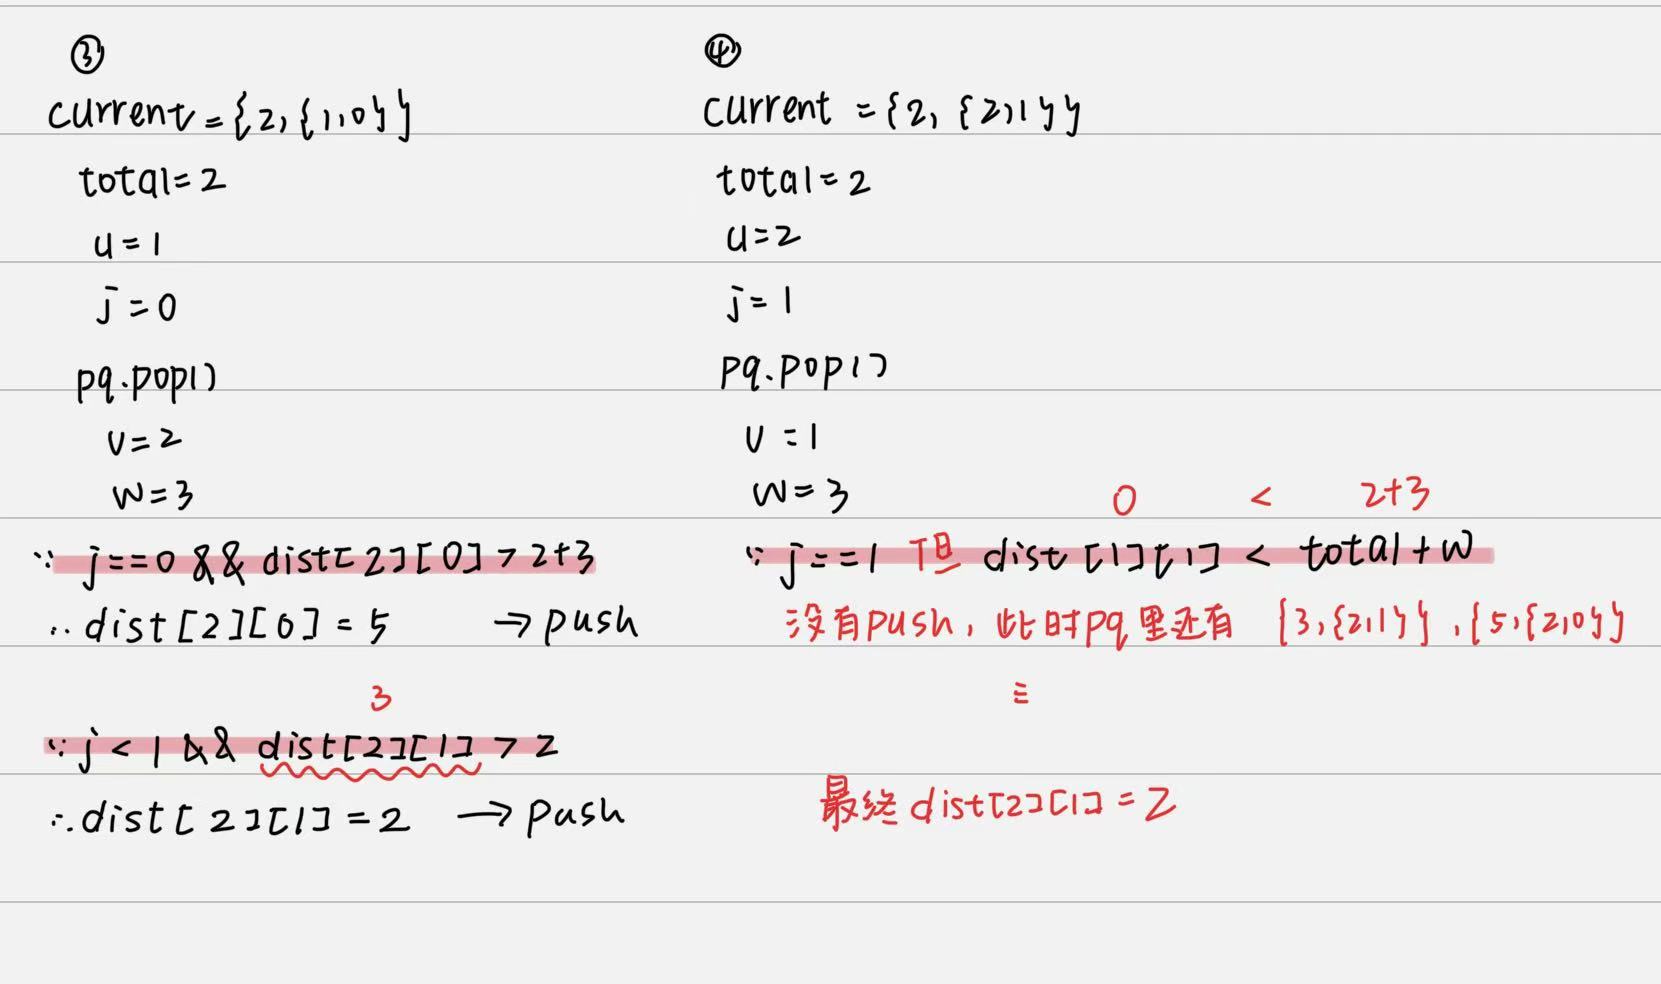 ③
current={2,{1,0}}
total=2
u=1
j=0
pq.pop()
v=2
w=3
∵ j==0 && dist[2][0]>2+3
∴ dist[2][0]=5 → push
3
∵ j<1 && dist[2][1]>2
∴ dist[2][1]=2 → push
④
current={2,{2,1}}
total=2
u=2
j=1
pq.pop()
v=1
w=3
0 < 2+3
∵ j==1 但 dist[1][1] < total+w
没有push,此时pq里还有 {3,{2,1}},{5,{2,0}}
最终dist[2][1]=2